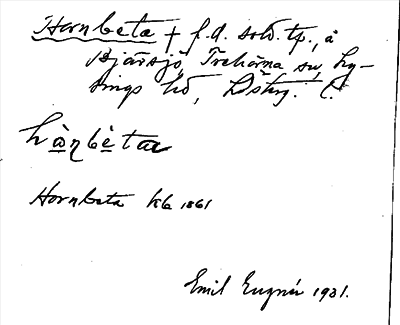 Hornbeta † f.d. sold. tp., å
Bjärsjö, Trehörna sn, Ly-
sings hd, Östrg. l.
ho̱ŋbe̱ta
Hornbeta kb 1861
Emil Eugnér 1931.